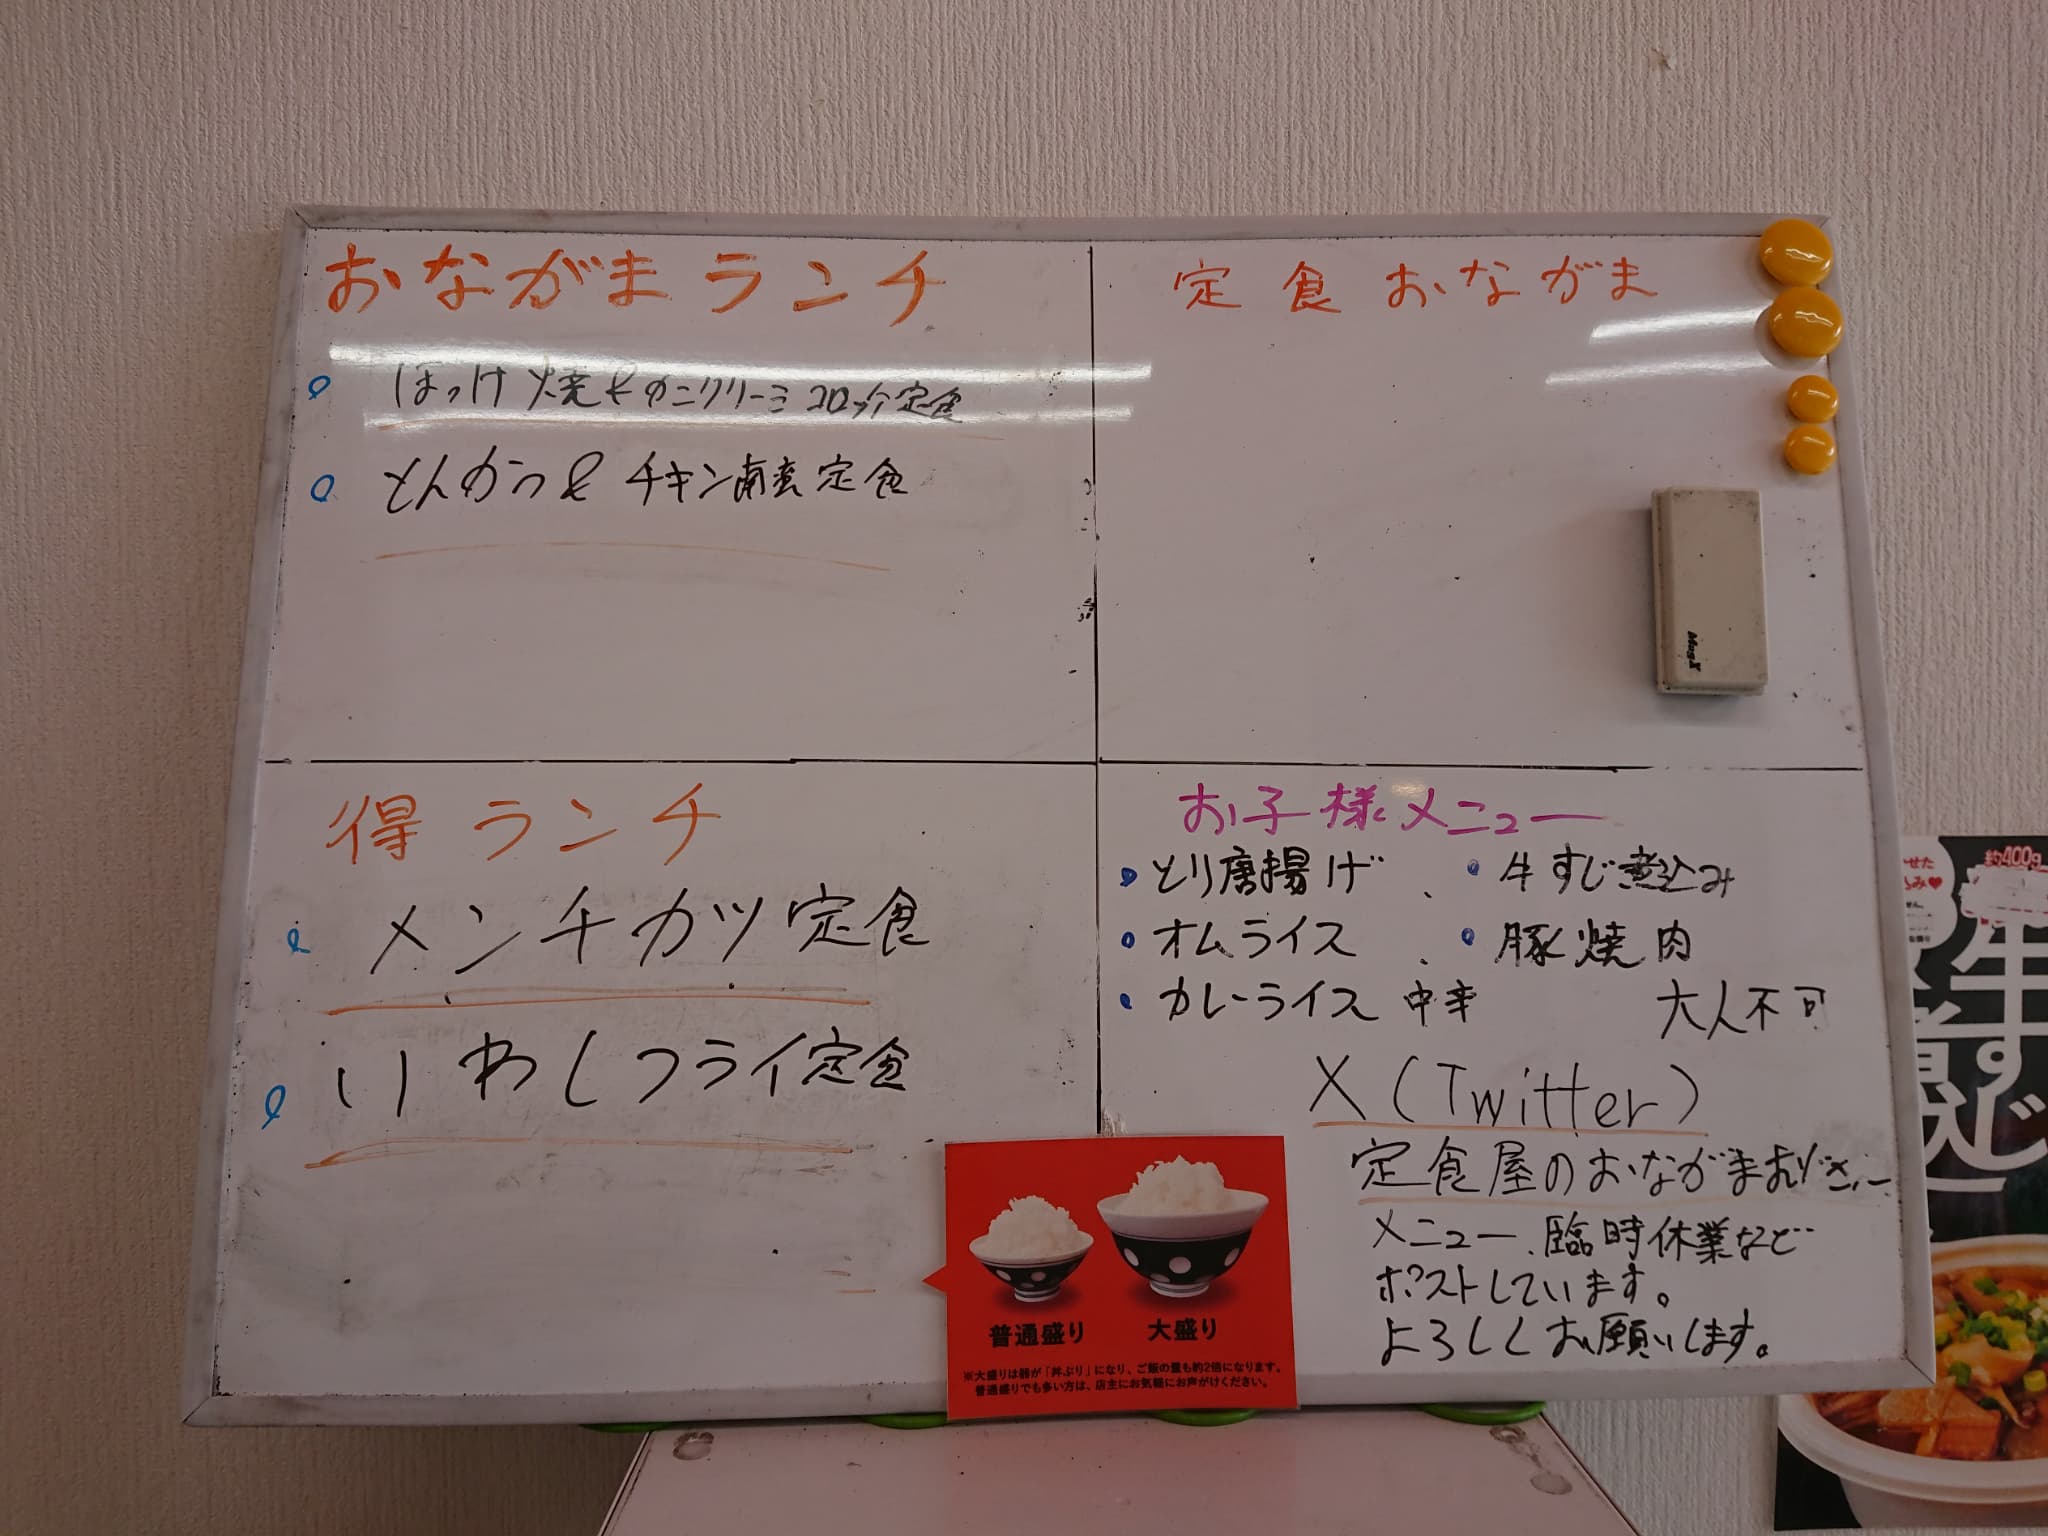 おながまランチ
ほっけ焼&カニクリーミコロッケ定食
とんかつ&チキン南蛮定食
定食おながま
MagX
得ランチ
メンチカツ定食
いわしフライ定食
お子様メニュー
・とり唐揚げ
・牛すじ煮込み
・オムライス
・豚焼肉
・カレーライス 中辛
大人不可
X(Twitter)
定食屋のおながまおじさん
メニュー、臨時休業など
ポストしています。
よろしくお願いします。
普通盛り
大盛り
※大盛りは器が「丼ぶり」になり、ご飯の量も約2倍になります。
普通盛りでも多い方は、店主にお気軽にお声がけください。
約400g
牛すじ
煮込